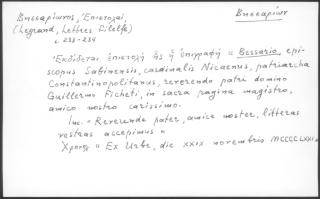 Βησσαρίωνος, Ἐπιστολαί
Βησσαρίων
(Legrand, Lettres Filelfe)
σ. 233-234
Ἐκδίδεται ἐπιστολὴ ἧς ἡ ἐπιγραφὴ "Bessario, epi-
scopus Sabinensis, cardinalis Nicaenus, patriarcha
Constantinopolitanus, reverendo patri domino
Guillermo Ficheti, in sacra pagina magistro,
amico nostro carissimo.
Inc. "Reverende pater, amice noster, litteras
vestras accepimus"
"Ex Urbe, die XXIX novembris